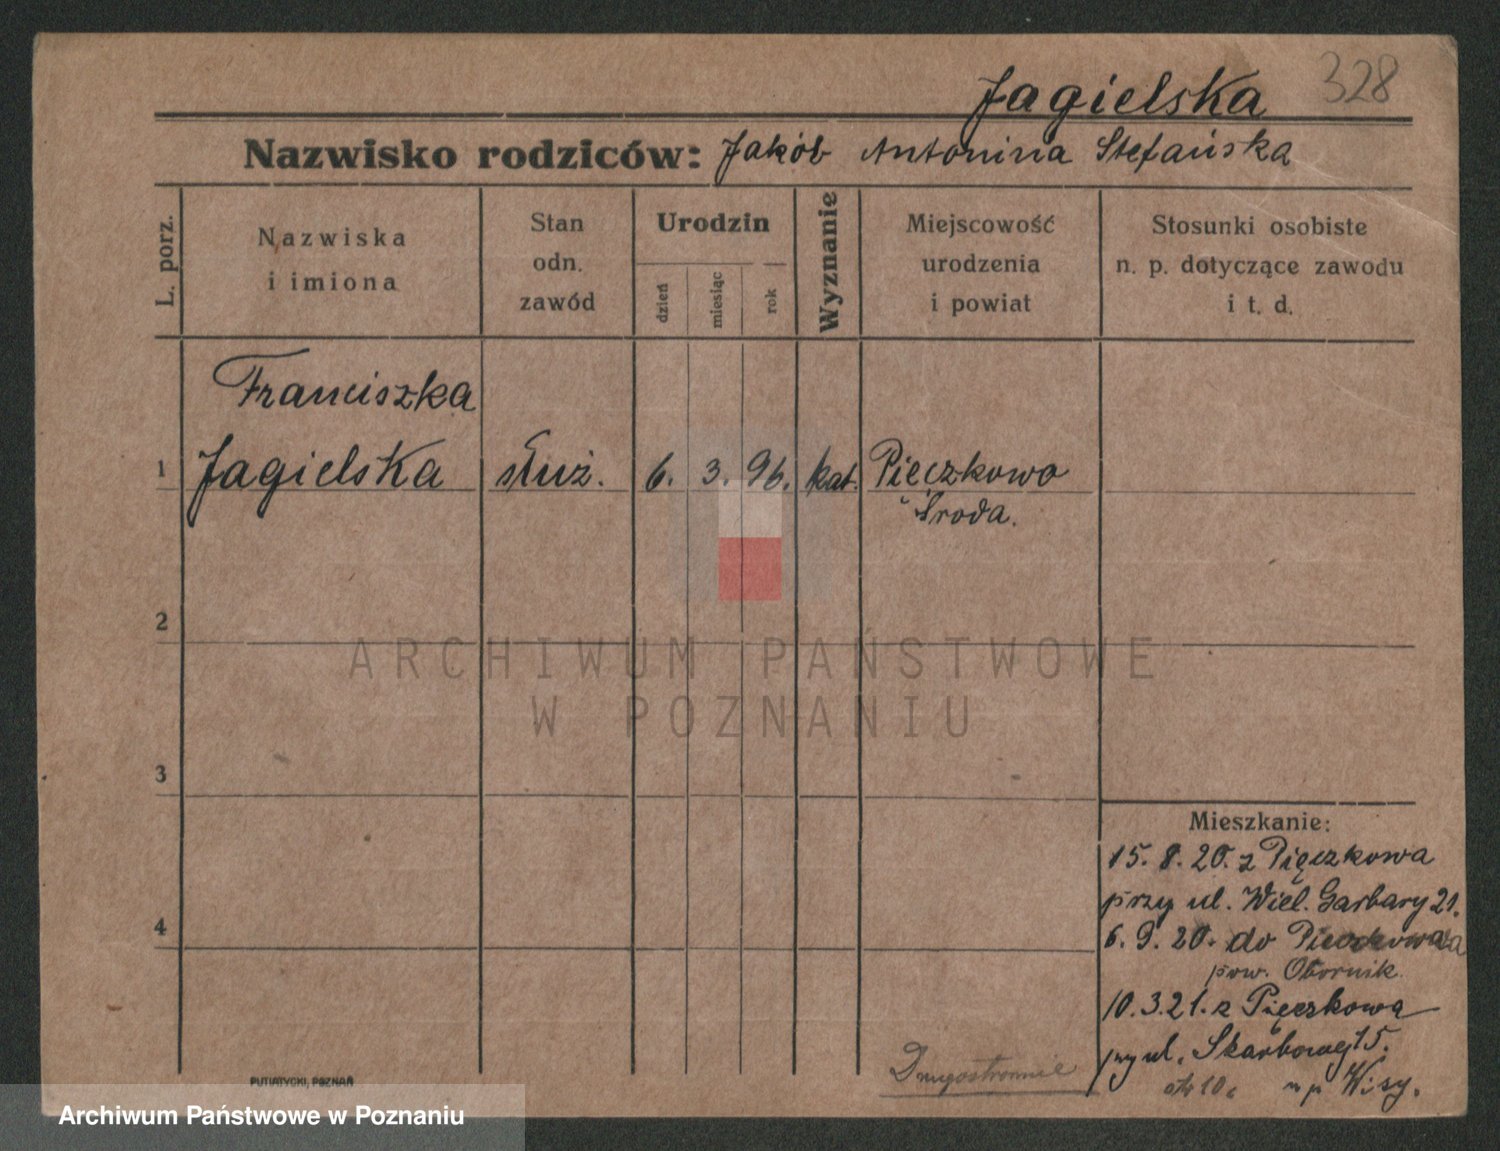 Jagielska 328
Nazwisko rodziców: Jakób Antonina Stefańska
L. porz.
Nazwiska i imiona
Stan odn. zawód
Urodzin
dzień miesiąc rok
Wyznanie
Miejscowość urodzenia i powiat
Stosunki osobiste n. p. dotyczące zawodu i t. d.
Franciszka
1 Jagielska służ. 6. 3. 96. kat. Pieczkowo
Środa.
2
ARCHIWUM PAŃSTWOWE
W POZNANIU
3
Mieszkanie:
15. 8. 20. z Pięczkowa
przy ul. Wiel. Garbary 21.
4
6. 9. 20. do
pow. Obornik.
10. 3. 21. z Pięczkowa
przy ul. Skarbowej 15.
u p. Wisy.
Drugostronnie
PUTIATYCKI, POZNAŃ
Archiwum Państwowe w Poznaniu